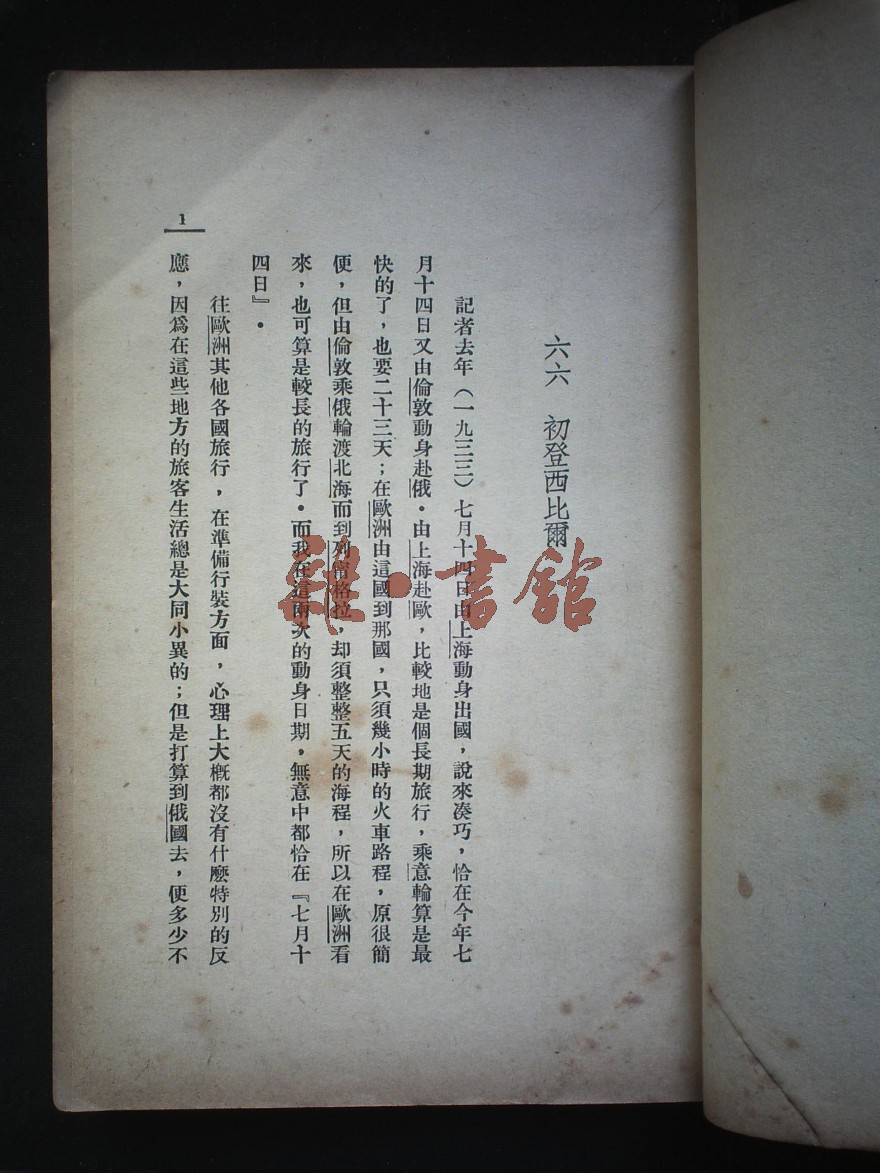 六六 初登西比爾
記者去年（一九三三）七月十四日由上海動身出國，說來凑巧，恰在今年七
月十四日又由倫敦動身赴俄。由上海赴歐，比較地是個長期旅行，乘意輪算是最
快的了，也要二十三天；在歐洲由這國到那國，只須幾小時的火車路程，原很簡
便，但由倫敦乘俄輪渡北海而到列甯格拉，却須整整五天的海程，所以在歐洲看
來，也可算是較長的旅行了。而我在這兩次的動身日期，無意中都恰在『七月十
四日』。
往歐洲其他各國旅行，在準備行裝方面，心理上大概都沒有什麽特別的反
應，因爲在這些地方的旅客生活總是大同小異的；但是打算到俄國去，便多少不
1
雜·書館